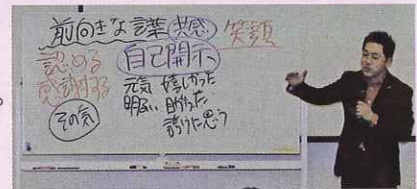 前向きな言葉 共感 笑顔
認める 自己開示
感謝する 元気 嬉しかった
明るい 助かった
その気 誇りに思う